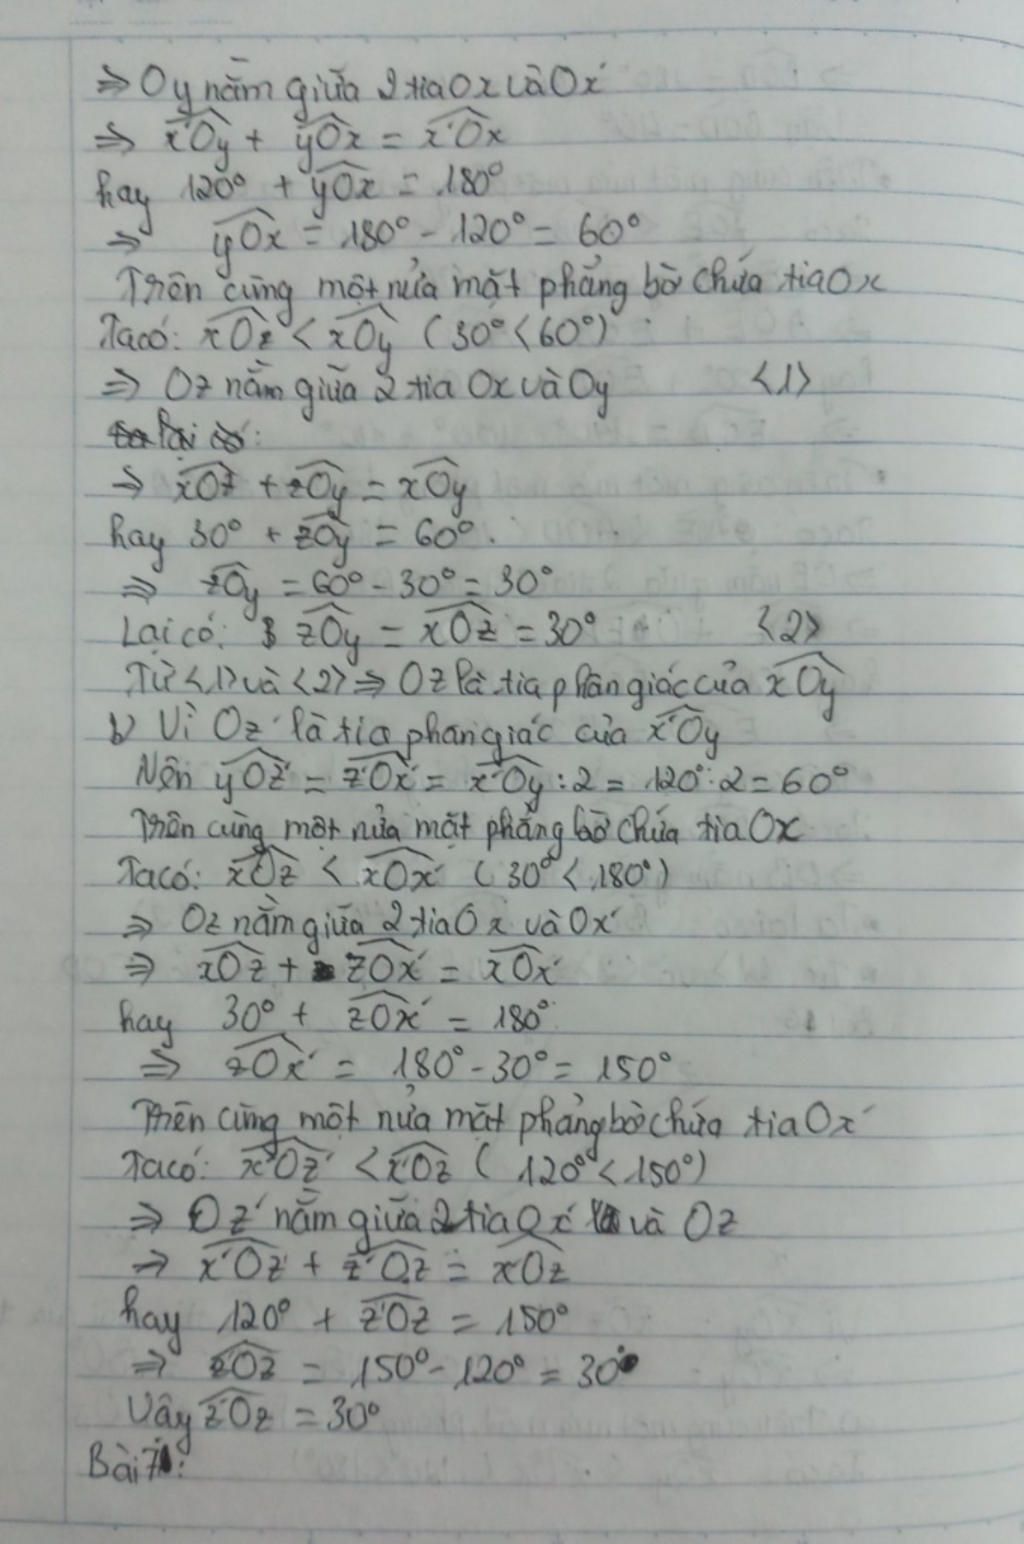 ⇒ Oy nằm giữa 2 tia Ox và Ox'
⇒ x'Oy + yOx = x'Ox
hay 120° + yOx = 180°
⇒ yOx = 180° - 120° = 60°
Trên cùng một nửa mặt phẳng bờ chứa tia Ox
Ta có: xOz < xOy (30° < 60°)
⇒ Oz nằm giữa 2 tia Ox và Oy <1>
⇒ xOz + zOy = xOy
hay 30° + zOy = 60°.
⇒ zOy = 60° - 30° = 30°
Lại có: zOy = xOz = 30° <2>
Từ <1> và <2> ⇒ Oz là tia phân giác của xOy
b) Vì Oz' là tia phân giác của x'Oy
Nên yOz' = z'Ox' = x'Oy : 2 = 120° : 2 = 60°
Trên cùng một nửa mặt phẳng bờ chứa tia Ox
Ta có: xOz < xOx' (30° < 180°)
⇒ Oz nằm giữa 2 tia Ox và Ox'
⇒ xOz + zOx' = xOx'
hay 30° + zOx' = 180°
⇒ zOx' = 180° - 30° = 150°
Trên cùng một nửa mặt phẳng bờ chứa tia Ox'
Ta có: x'Oz' < x'Oz (120° < 150°)
⇒ Oz' nằm giữa 2 tia Ox' và Oz
⇒ x'Oz' + z'Oz = x'Oz
hay 120° + z'Oz = 150°
⇒ zOz = 150° - 120° = 30°
Vậy z'Oz = 30°
Bài 7: